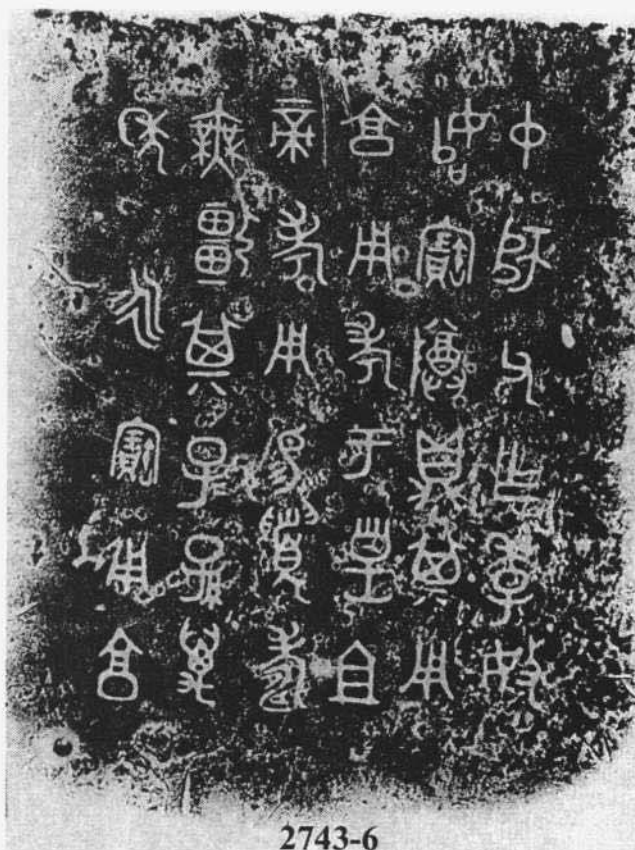 中師父乍季
始寶尊鼎其用
享用考于皇且
帝考用易眉壽
無疆其子孫萬
年永寶用享
2743-6